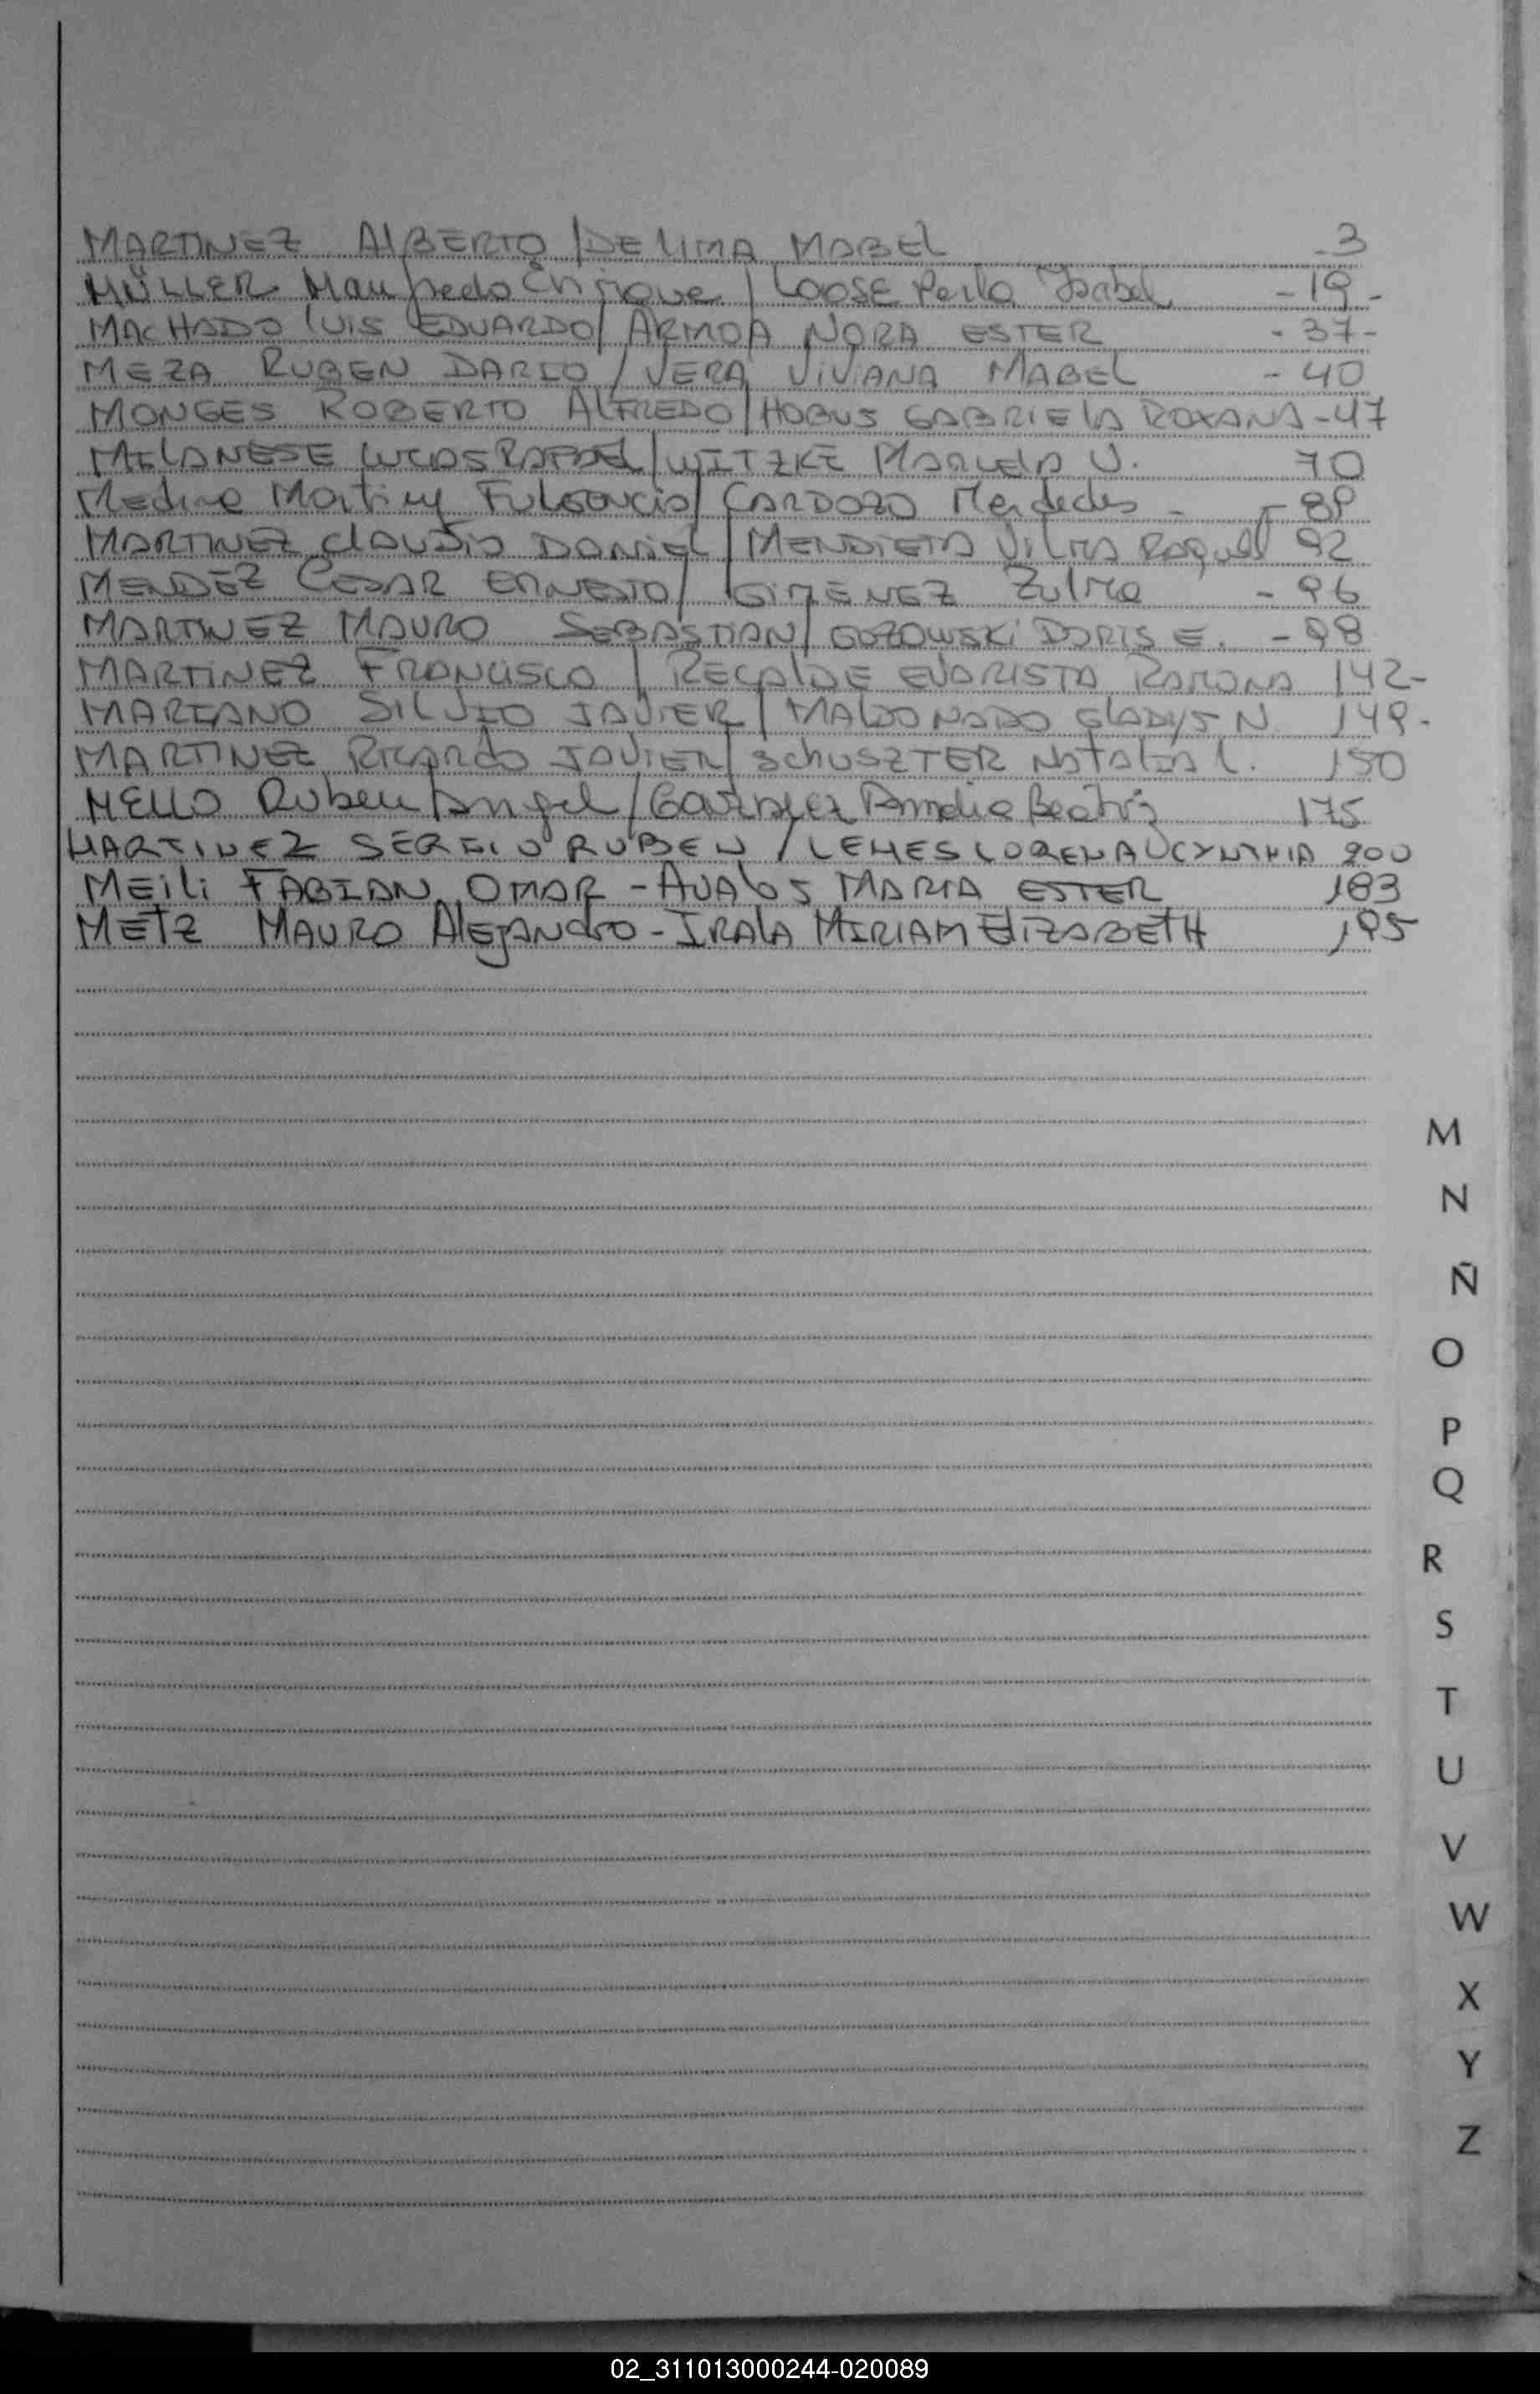 MARTINEZ ALBERTO / DE LIMA MABEL - 3
MÜLLER Manfredo Enrique / Loose Perla Isabel - 19 -
MACHADO LUIS EDUARDO / ARMOA NORA ESTER - 37 -
MEZA RUBEN DARIO / VERA VIVIANA MABEL - 40
MONGES ROBERTO ALFREDO / HOBUS GABRIELA ROXANA - 47
MILANESE LUCAS RAFAEL / WITZKE MARCELA V. 70
Medina Martinez FULGENCIO / CARDOZO Mercedes -
MARTINEZ CLAUDIO DANIEL / MENDIETA VILMA RAQUEL 92
MENDEZ CESAR ERNESTO / GIMENEZ Zulma - 96
MARTINEZ MAURO SEBASTIAN / GOZOWSKI DORIS E. - 98
MARTINEZ FRANCISCO / RECALDE EVARISTA RAMONA 142 -
MARIANO SILVIO JAVIER / MALDONADO GLADYS N. 149 -
MARTINEZ RICARDO JAVIER / SCHUSZTER NATALIA L. 150
MELLO Ruben Angel / Amelia Beatriz 175
MARTINEZ SERGIO RUBEN / LEMES LORENA CYNTHIA 200
MEILI FABIAN OMAR - AVALOS MARIA ESTER 183
METZ MAURO ALEJANDRO - IRALA MIRIAM ELIZABETH 195
M
N
Ñ
O
P
Q
R
S
T
U
V
W
X
Y
Z
02_311013000244-020089